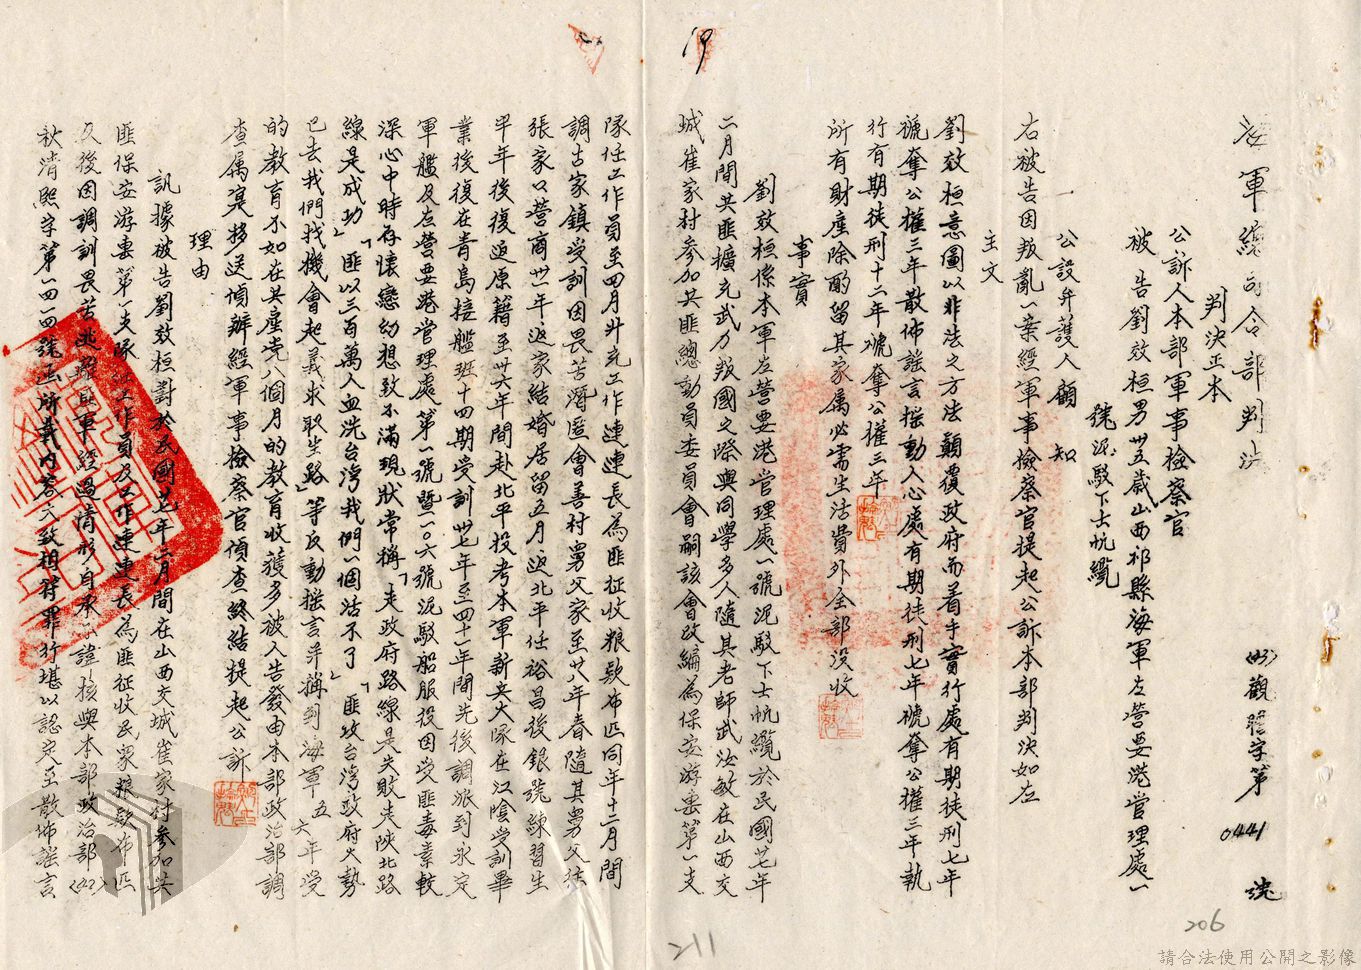 19
海軍總司令部判決
(43)觀臨字第0441號
判決正本
公訴人本部軍事檢察官
被告劉效桓男卅五歲山西祁縣海軍左營要港管理處一
號泥駁下士帆纜
公設弁護人顧知
右被告因叛亂一案經軍事檢察官提起公訴本部判決如左
主文
劉效桓意圖以非法之方法顛覆政府而着手實行處有期徒刑七年
褫奪公權三年散佈謠言搖動人心處有期徒刑七年褫奪公權三年執
行有期徒刑十二年褫奪公權三年
所有財產除酌留其家属必需生活費外全部没收
事實
劉效桓係本軍左營要港管理處一號泥駁下士帆纜於民國廿七年
二月間共匪擴充武力叛國之際與同學多人隨其老師武汝敏在山西交
城崔家村參加共匪總動員委員會嗣該會改編為保安游击第一支
隊任工作员至四月升充工作連連長為匪征收粮款布匹同年十二月間
調古家鎮受訓因畏苦潛匿會善村舅父家至廿八年春隨其舅父往
張家口營商卅一年返家結婚居留五月返北平任裕昌後銀號練習生
半年後復返原籍至卅六年間赴北平投考本軍新兵大隊在江陰受訓畢
業後復在青島接艦班十四期受訓卅七年至四十一年間先後調派到永定
軍艦及左營要港管理處第一號暨一〇六號泥駁船服役因受匪毒素較
深心中時存懷戀幻想致不滿現狀常稱「走政府路線是失敗走陝北路
線是成功」「匪以三百萬人血洗台灣我們一個活不了」「匪攻台灣政府大勢
已去我們找機會起義求取生路」等反動搖言并稱到海軍五六年受
的教育不如在共產党八個月的教育收獲多被人告發由本部政治部調
查属实移送偵辦經軍事檢察官偵查終結提起公訴
理由
訊據被告劉效桓對於民國廿七年二月間在山西交城崔家村參加共
匪保安游击第一支隊任工作員及工作連連長為匪征收民眾粮款布匹
及後因調訓畏苦逃避 軍經過情形自承 證核與本部政治部(42)
秋清熙字第一四四號函所載内容大致相符罪行堪以認定至散佈謠言
211
206
請合法使用公開之影像